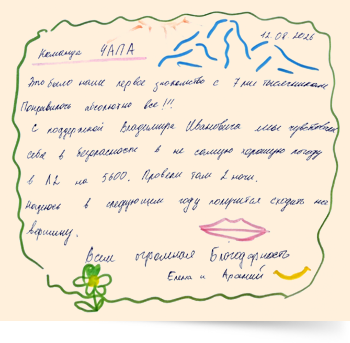 12.08.2026
Команда ЧАПА
Это было наше первое знакомство с 7ми тысячником
Понравилось абсолютно все!!!
С поддержкой Владимира Ивановича мы чувствовали
себя в безопасности в не самую хорошую погоду
в Л2 на 5600. Провели там 2 ночи.
Надеюсь в следующем году получится сходить на
вершину.
Всем огромная Благодарность
Елена и Арсений